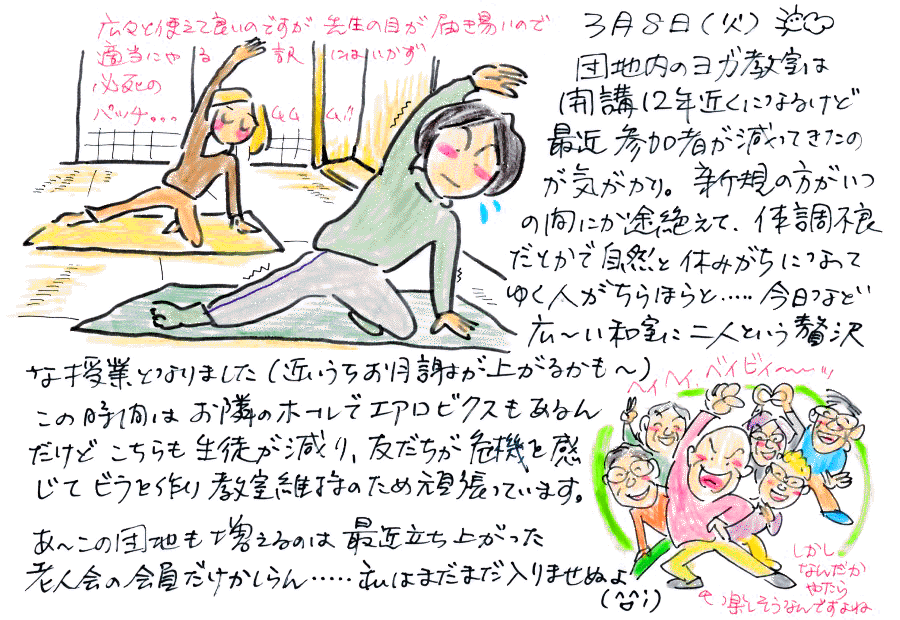 3月8日(火)
団地内のヨガ教室は
開講12年近くになるけど
最近参加者が減ってきたの
が気がかり。新規の方がいつ
の間にか途絶えて、体調不良
だとかで自然と休みがちになって
ゆく人がちらほらと.....今日など
広〜い和室に二人という贅沢
な授業となりました(近いうちお月謝が上がるかも〜)
この時間はお隣のホールでエアロビクスもあるん
だけどこちらも生徒が減り、友だちが危機を感
じてビラを作り教室維持のため頑張っています。
あ〜この団地も増えるのは最近立ち上がった
老人会の会員だけかしらん.....私はまだまだ入りませぬよ
(^△^;)
広々と使えて良いのですが先生の目が届き易いので
適当にやる訳にはいかず
必死の
パッチ...
ヘイヘイ、ベイビィ〜〜ッ
しかし
なんだか
やたら
楽しそうなんですよね